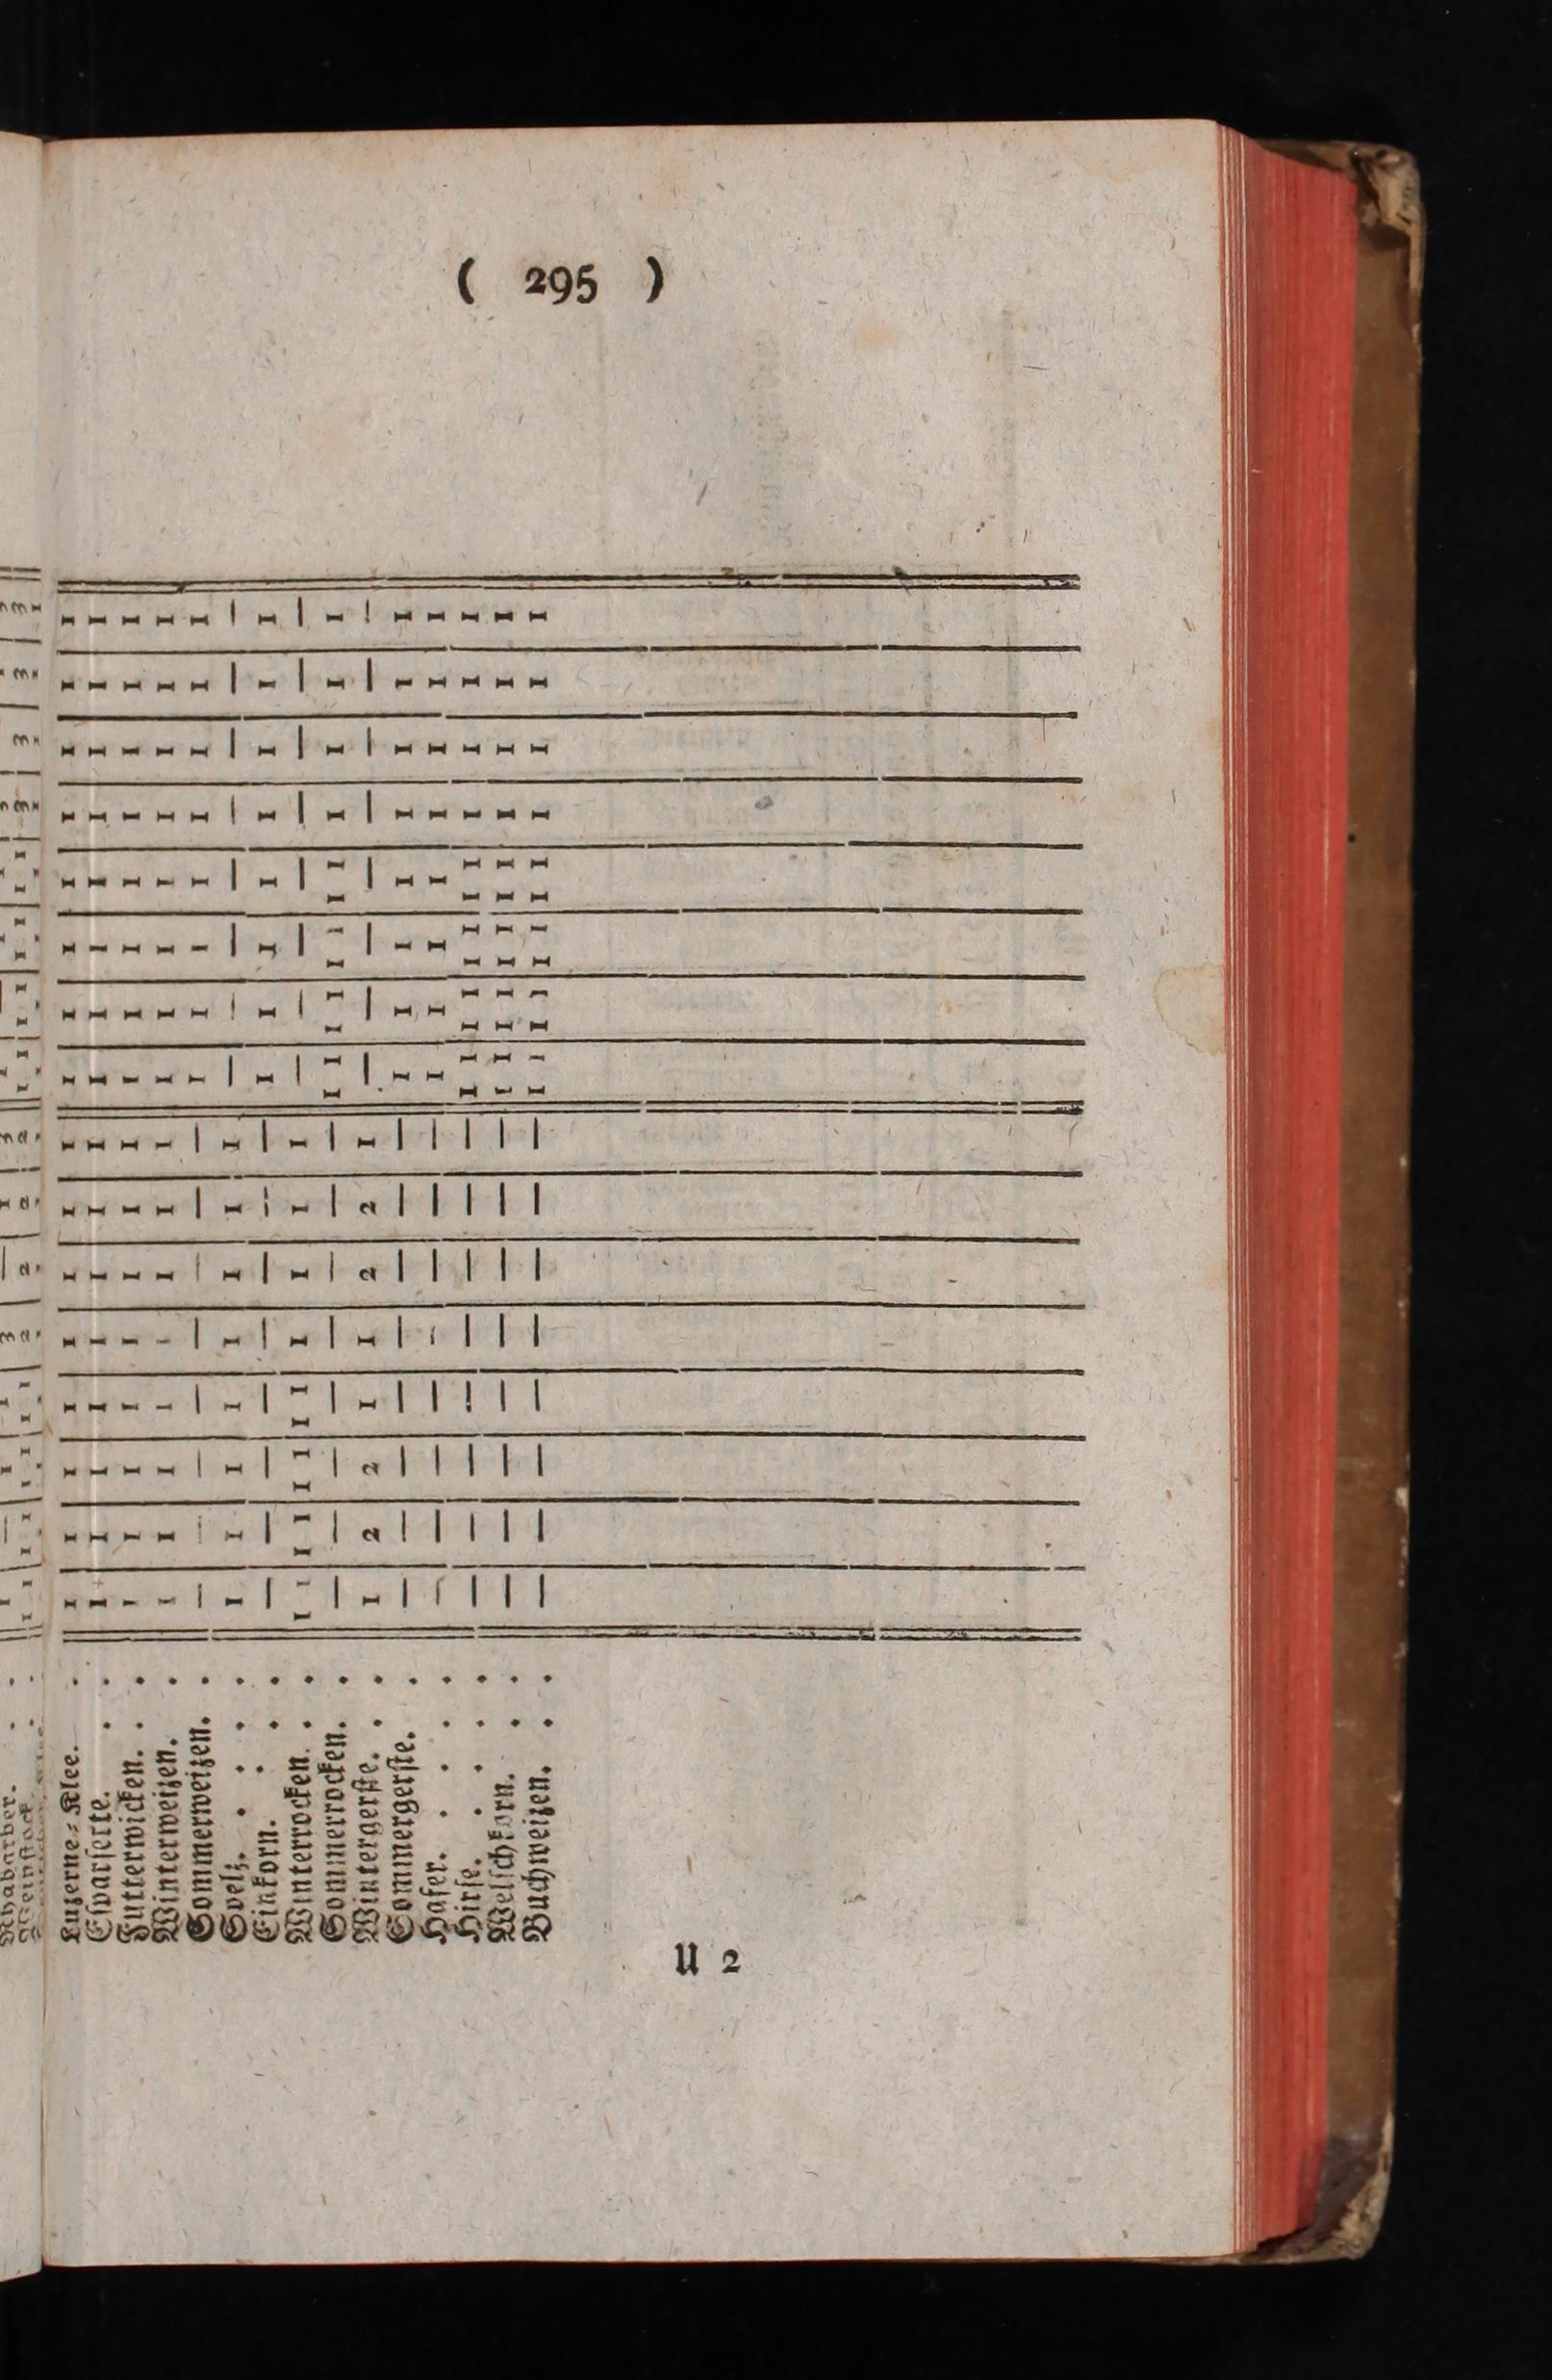 ( 295 )
Luzerne-Klee. . 1 1 1 1 1 1 1 1 1 1 1 1 1 1 1 1
Esparsette. . . 1 1 1 1 1 1 1 1 1 1 1 1 1 1 1 1
Futterwicken. . . 1 1 1 1 1 1 1 1 1 1 1 1 1 1 1 1
Winterweizen. . 1 1 1 1 1 1 1 1 1 1 1 1 1 1 1 1
Sommerweizen. . — — — — — — — — 1 1 1 1 1 1 1 1
Spelz. . . . . 1 1 1 1 1 1 1 1 — — — — — — — —
Einkorn. . . . — — — — — — — — 1 1 1 1 1 1 1 1
Winterrocken. . . 1 1 1 1 1 1 1 1 1 1 1 1 — — — — — — — —
Sommerrocken. . — — — — — — — — 1 1 1 1 1 1 1 1 1 1 1 1
Wintergerste. . . 1 2 2 1 1 2 2 1 — — — — — — — —
Sommergerste. . — — — — — — — — 1 1 1 1 1 1 1 1
Hafer. . . . . — — — — — — — — 1 1 1 1 1 1 1 1
Hirse. . . . . — — — — — — — — 1 1 1 1 1 1 1 1 1 1 1 1
Welschkorn. . . — — — — — — — — 1 1 1 1 1 1 1 1 1 1 1 1
Buchweizen. . . — — — — — — — — 1 1 1 1 1 1 1 1 1 1 1 1
U 2